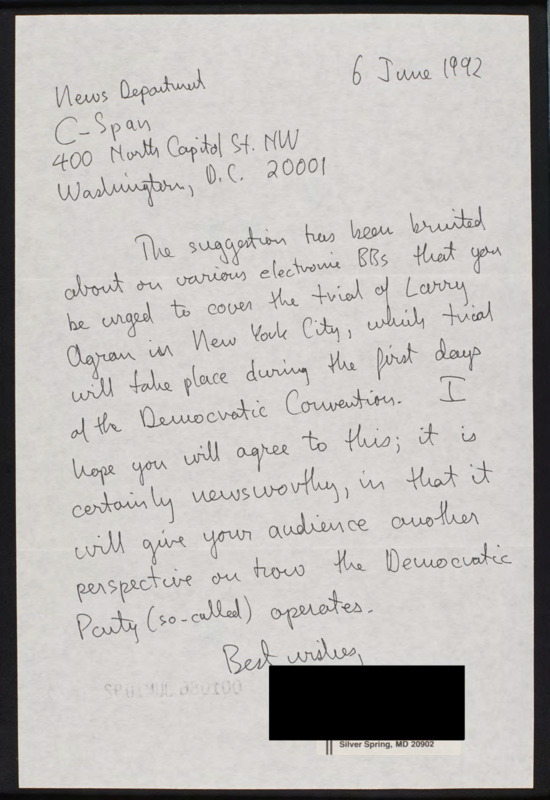 6 June 1992
News Department
C-Span
400 North Capitol St. NW
Washington, D.C. 20001
The suggestion has been bruited
about on various electronic BBs that you
be urged to cover the trial of Larry
Agran in New York City, which trial
will take place during the first days
of the Democratic Convention. I
hope you will agree to this; it is
certainly newsworthy, in that it
will give your audience another
perspective on how the Democratic
Party (so-called) operates.
Best wishes,
Silver Spring, MD 20902